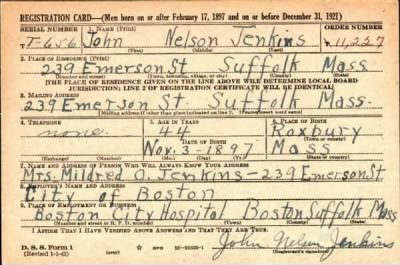 REGISTRATION CARD—(Men born on or after February 17, 1897 and on or before December 31, 1921)
SERIAL NUMBER 1. NAME (Print) ORDER NUMBER
T-656 John Nelson Jenkins 11,227
(First) (Middle) (Last)
2. PLACE OF RESIDENCE (Print)
239 Emerson St Suffolk Mass
(Number and street) (Town, township, village, or city) (County) (State)
[THE PLACE OF RESIDENCE GIVEN ON THE LINE ABOVE WILL DETERMINE LOCAL BOARD
JURISDICTION; LINE 2 OF REGISTRATION CERTIFICATE WILL BE IDENTICAL]
3. MAILING ADDRESS
239 Emerson St. Suffolk Mass.
[Mailing address if other than place indicated on line 2. If same insert word same]
4. TELEPHONE 5. AGE IN YEARS 6. PLACE OF BIRTH
none 44 Roxbury
DATE OF BIRTH (Town or county)
Nov. 3 - 1897 Mass
(Exchange) (Number) (Mo.) (Day) (Yr.) (State or country)
7. NAME AND ADDRESS OF PERSON WHO WILL ALWAYS KNOW YOUR ADDRESS
Mrs. Mildred O. Jenkins - 239 Emerson St
8. EMPLOYER'S NAME AND ADDRESS
City of Boston
9. PLACE OF EMPLOYMENT OR BUSINESS
Boston City Hospital Boston Suffolk Mass
(Number and street or R. F. D. number) (Town) (County) (State)
I AFFIRM THAT I HAVE VERIFIED ABOVE ANSWERS AND THAT THEY ARE TRUE.
D. S. S. Form 1 John Nelson Jenkins
(Revised 1-1-42) (over) GPO (Registrant's signature)